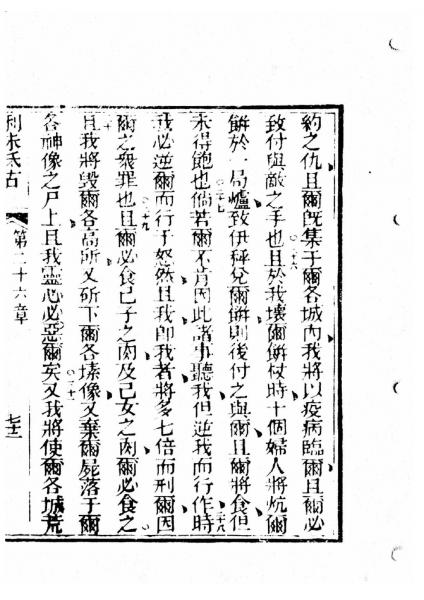 約之仇且爾既集于爾各城內我將以疫病臨爾且爾必
致付與敵之手也且於我壞爾餅杖時十個婦人將炕爾
餅於一局爐致伊秤兌爾餅則後付之與爾且爾將食但
未得飽也倘若爾不肯因此諸事聽我但逆我而行作時
我必逆爾而行于怒然且我卽我者將多七倍而刑爾因
爾之衆罪也且爾必食己子之肉及己女之肉爾必食之
且我將毀爾各高所又斫下爾各塐像又棄爾屍落于爾
各神像之尸上且我靈心必惡爾矣又我將使爾各城荒
利未氏古 第二十六章 七十二